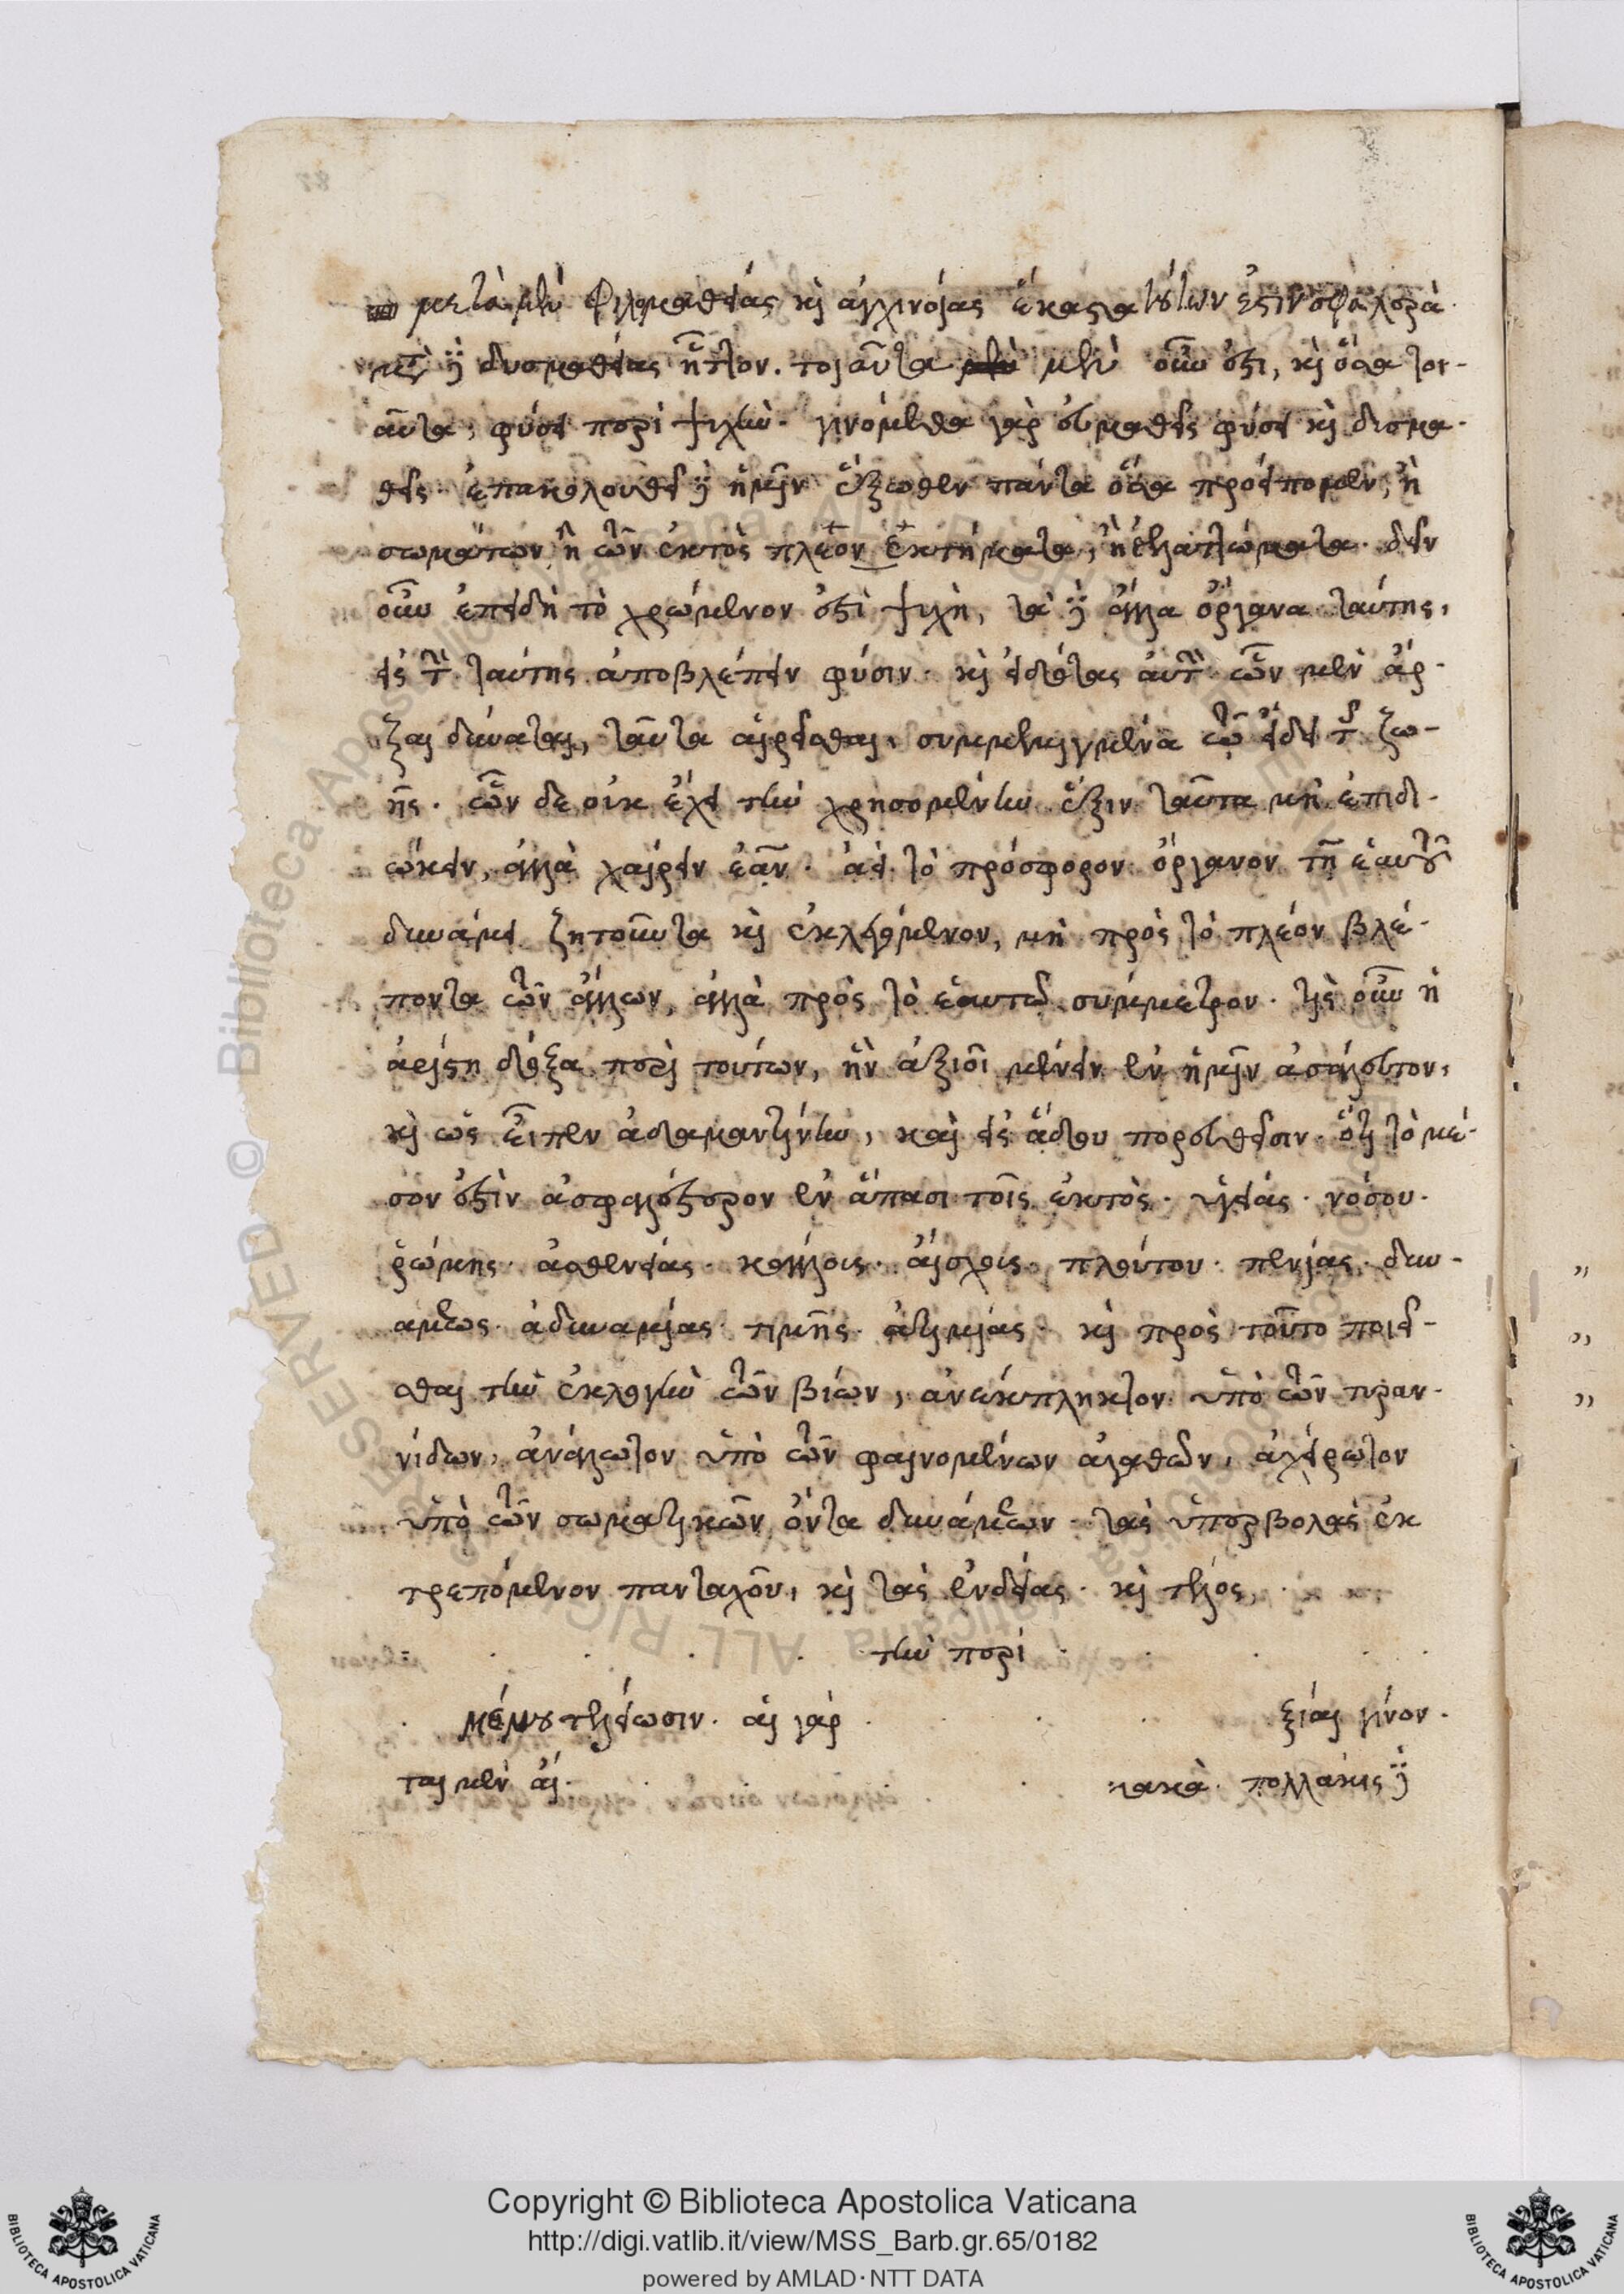 μετὰ μὲν φιλομαθείας κὶ ἀγχινοίας ἕκαστα τούτων ἐστιν σφαλερὰ
μετὰ δὲ δυσμαθείας ἧττον. τοιαῦτα μὲν οὖν ἐστι, κὶ ὅσα τοι-
αῦτα, φύσει περὶ ψυχήν. γινόμεθα γὰρ εὐμαθεῖς φύσει κὶ δυσμα-
θεῖς. ἐπακολουθεῖ δὲ ἡμῖν ἔξωθεν πάντα ὅσα προείπομεν, ἢ
σωμάτων ἢ τῶν ἐκτὸς πλεονεκτήματα, ἢ ἐλαττώματα. δεῖν
οὖν ἐπειδὴ τὸ χρώμενον ἐστὶ ψυχὴ, τὰ δὲ ἄλλα ὄργανα ταύτης,
εἰς τὴν ταύτης ἀποβλέπειν φύσιν. κὶ εἰδότας αὐτὴν ὧν μὲν ἄρ-
ξαι δύναται, ταῦτα αἱρεῖσθαι, συμμεμιγμένα τῷ εἴδει τῆς ζω-
ῆς. ὧν δε οὐκ ἔχει τὴν χρησομένην ἕξιν ταῦτα μὴ ἐπιδι-
ώκειν, ἀλλὰ χαίρειν ἐᾶν. ἀεὶ τὸ πρόσφορον ὄργανον τῇ ἑαυτοῦ
δυνάμει ζητοῦντα κὶ ἐκλεγόμενον, μὴ πρὸς τὸ πλέον βλέ-
ποντα τῶν ἄλλων, ἀλλὰ πρὸς τὸ ἑαυτῷ σύμμετρον. τίς οὖν ἡ
ἀρίστη δόξα περὶ τούτων, ἣν ἀξιοῖ μένειν ἐν ἡμῖν ἀσάλευτον,
κὶ ὡς εἶπεν ἀδαμαντίνην, καὶ εἰς ᾅδου πορευθεῖσιν. ὅτι τὸ μέ-
σον ἐστὶν ἀσφαλέστερον ἐν ἅπασι τοῖς ἐκτὸς. ὑγείας. νόσου.
ῥώμης. ἀσθενείας. κάλλους. αἴσχους. πλούτου. πενίας. δυν-
άμεως. ἀδυναμίας. τιμῆς. ἀτιμίας. κὶ πρὸς τοῦτο ποιεῖ-
σθαι τὴν ἐκλογὴν τῶν βίων, ἀνέκπληκτον ὑπὸ τῶν τυραν-
νίδων, ἀνάλωτον ὑπὸ τῶν φαινομένων ἀγαθῶν, ἀχείρωτον
ὑπὸ τῶν σωματικῶν ὄντα δυνάμεων. τὰς ὑπερβολὰς ἐκ
τρεπόμενον πανταχοῦ, κὶ τὰς ἐνδείας. κὶ τέλος.
τὴν περὶ
τελείωσιν. αἱ γὰρ ξίαι γίνον-
ται μὲν αἱ κακὰ. πολλάκις δὲ
Copyright © Biblioteca Apostolica Vaticana
http://digi.vatlib.it/view/MSS_Barb.gr.65/0182
powered by AMLAD·NTT DATA